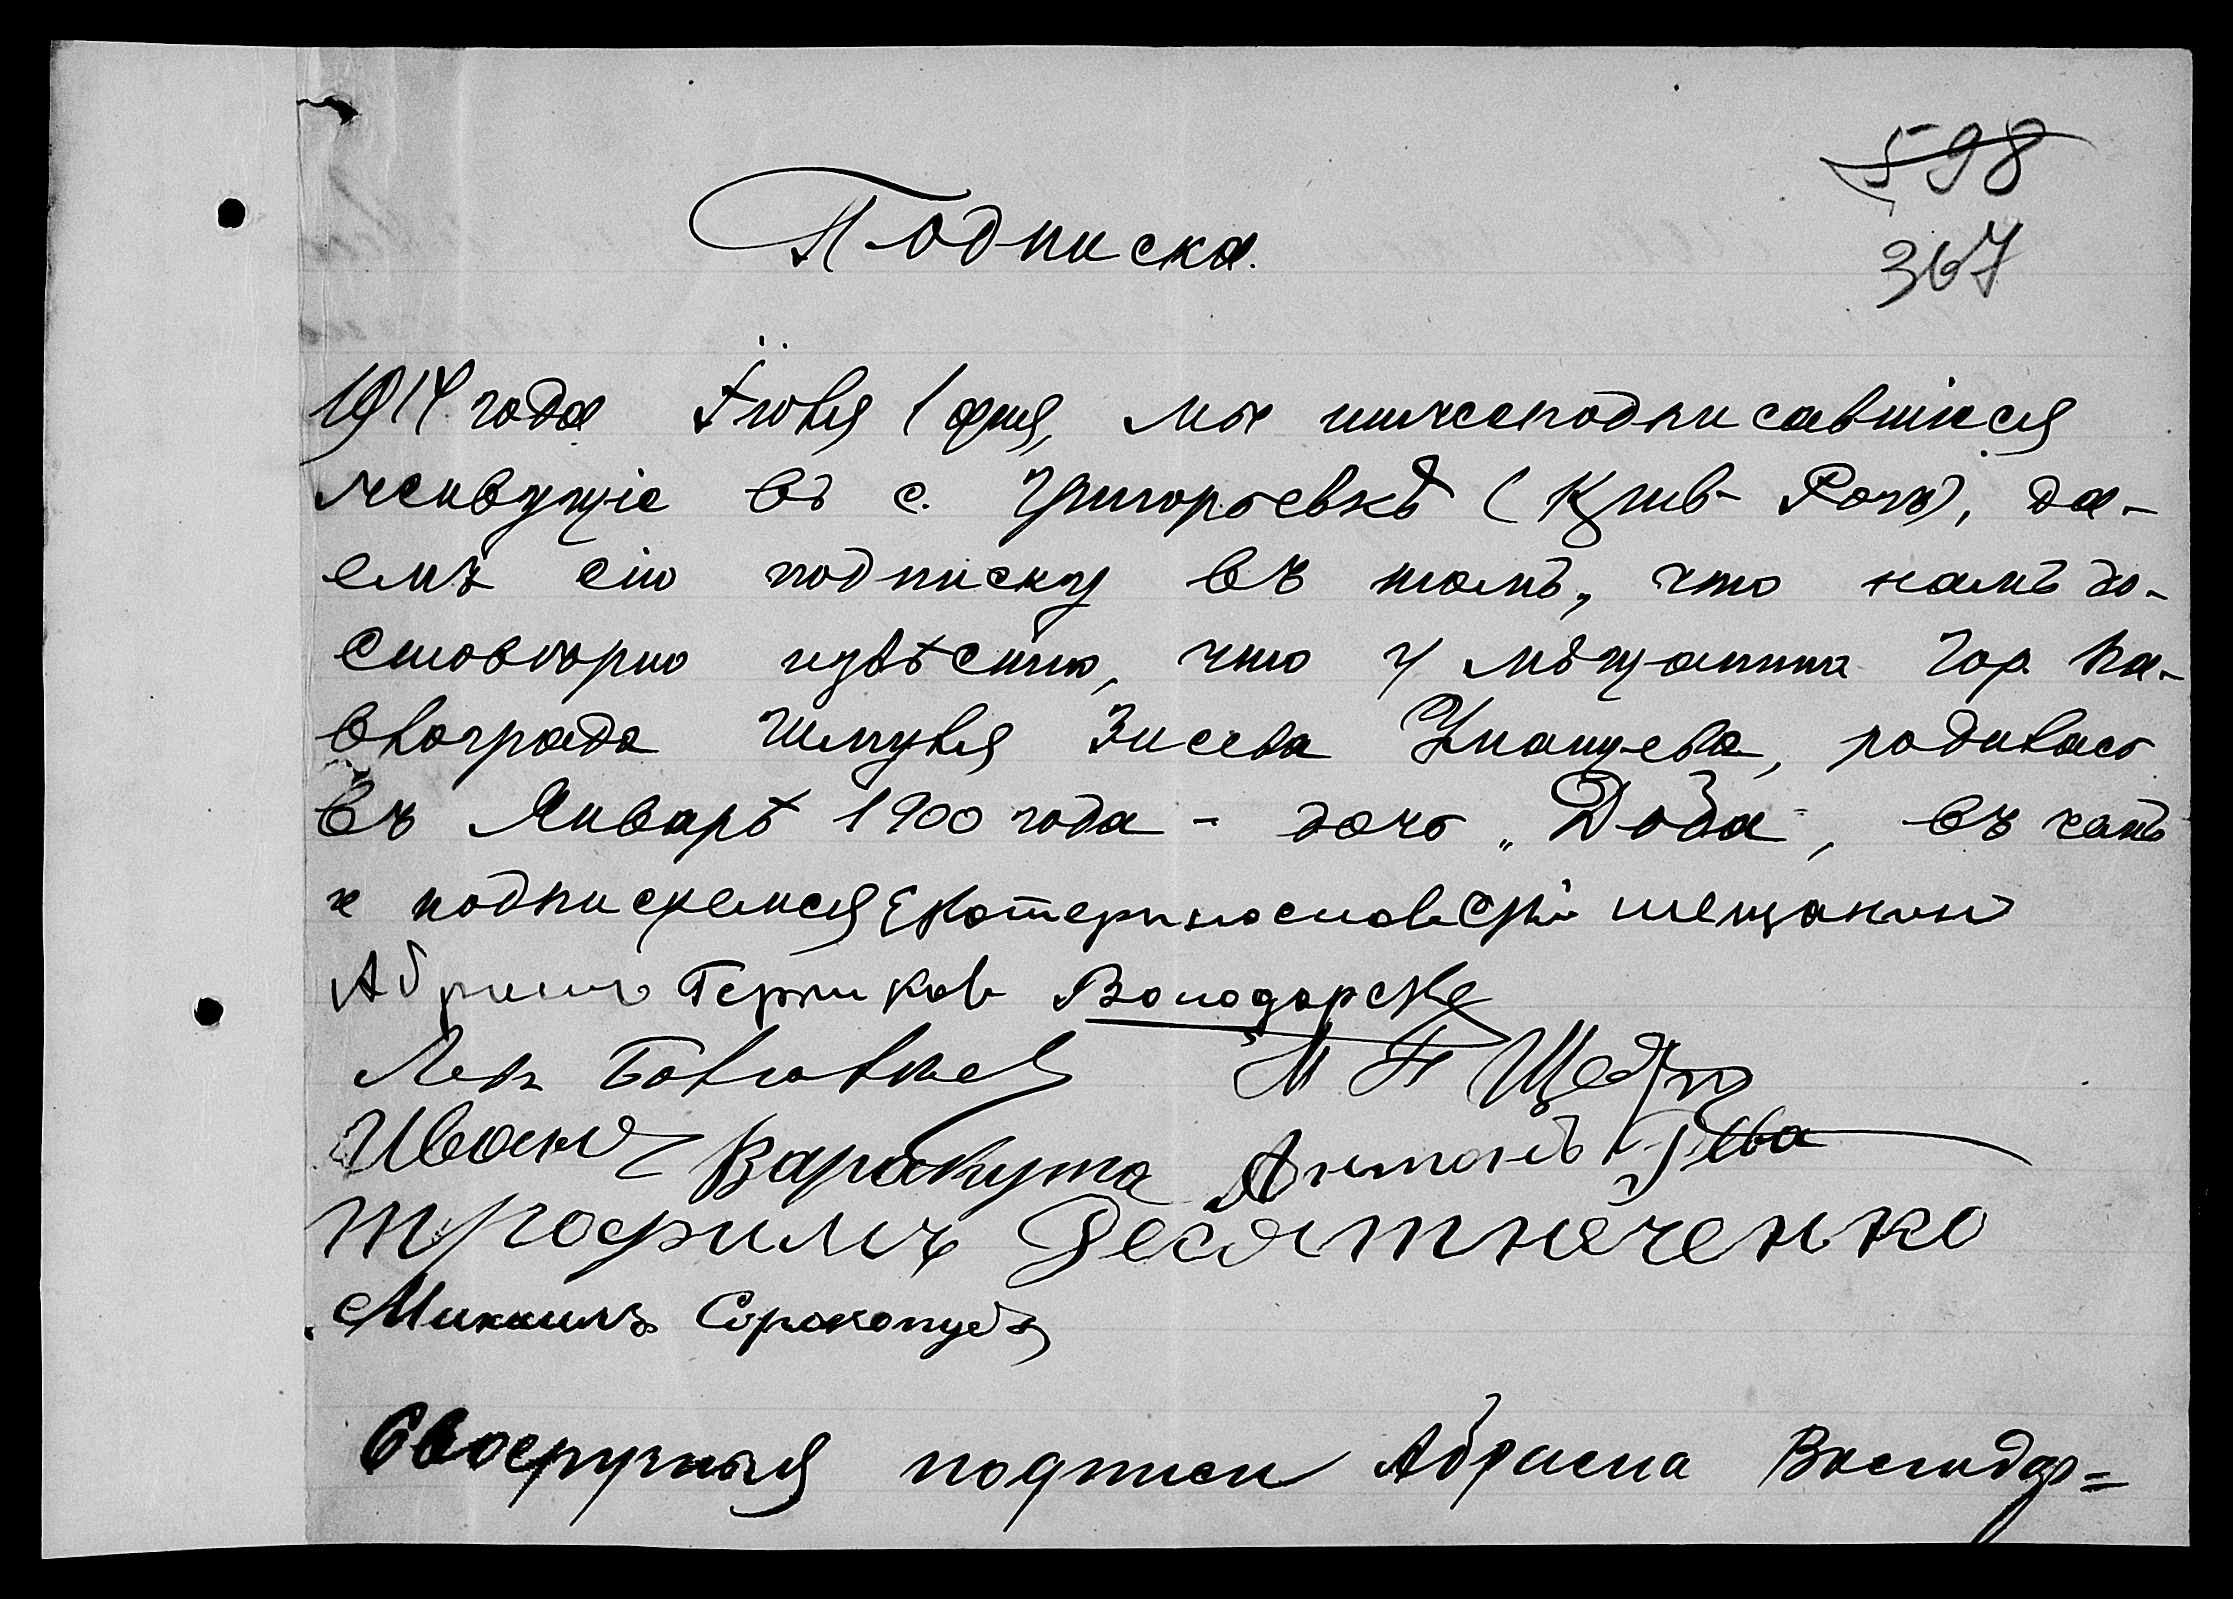 598
367
Подписка.
1914 года Іюля 1 дня, мы нижеподписавшіися
живущіе въ с. Григорьевкѣ (Крив-Рогъ), да-
емъ сію подписку въ томъ, что намъ до-
стовѣрно извѣстно, что у мѣщанина гор. Па-
влограда Шмуля Зисева, родилась
въ Январѣ 1900 года - дочь „Доба", въ чемъ
и подписуемся Екатеринославскій мещанин
Абрамъ Берков Володарске
Лев М П
Иванъ Варакута Антонъ Рева
Трофимъ Десятниченко
Михаилъ Сорокопудъ
Своеручныя подписи Абрама Володар=